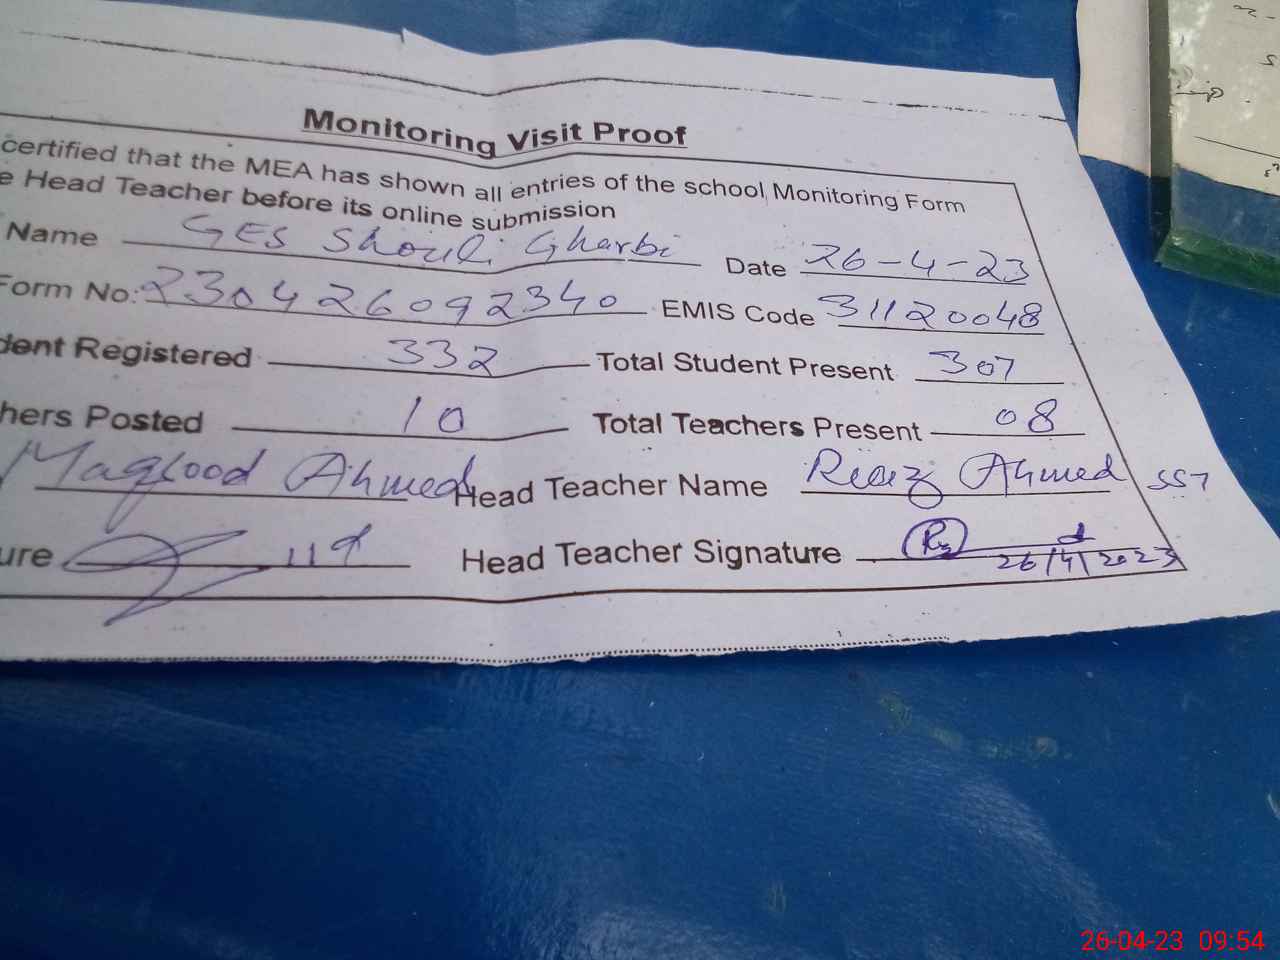 Monitoring Visit Proof
certified that the MEA has shown all entries of the school Monitoring Form
e Head Teacher before its online submission
Name GES Shouli Gharbi Date 26-4-23
Form No: 230426092340 EMIS Code 31120048
dent Registered 332 Total Student Present 307
hers Posted 10 Total Teachers Present 08
Maqsood Ahmed Head Teacher Name Riaz Ahmed SST
ure Head Teacher Signature
26/4/2023
26-04-23 09:54